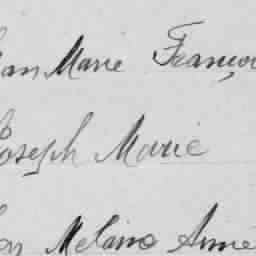 Jean Marie Françoi
Joseph Marie
Melaine Anne